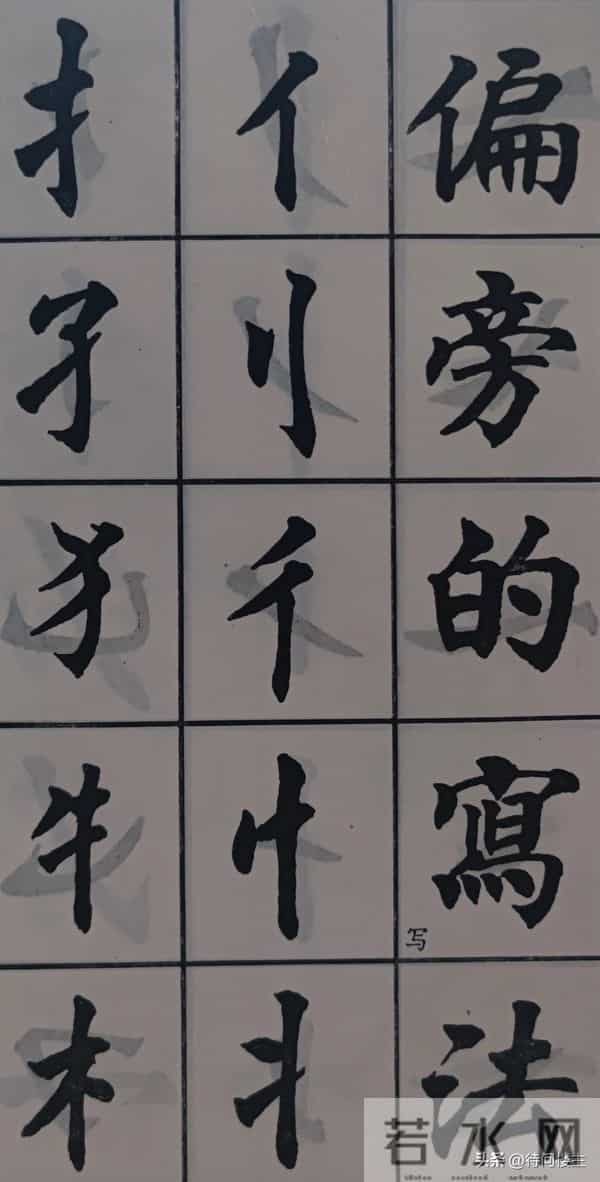 偏旁的寫法
写
亻刂彳忄丬
扌孑犭牜木
若水网
头条@待问楼主